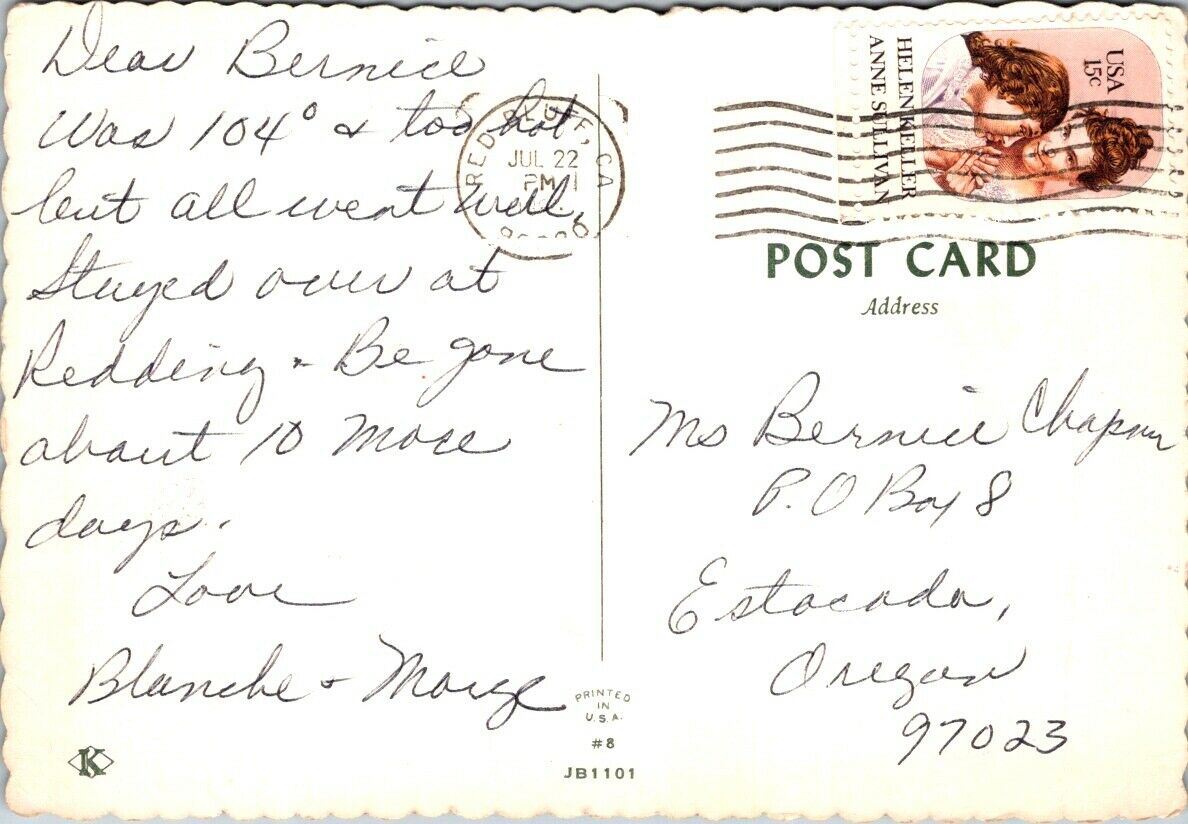 Dear Bernice
Was 104° & too hot
but all went well.
Stayed over at
Redding - Be gone
about 10 more
days.
Love
Blanche & Marge
K
RED BLUFF, CA
JUL 22
PM
USA
15c
HELEN KELLER
ANNE SULLIVAN
POST CARD
Address
Ms Bernice Chapman
P.O Box 8
Estacada,
Oregon
97023
PRINTED
IN
U.S.A.
#8
JB1101